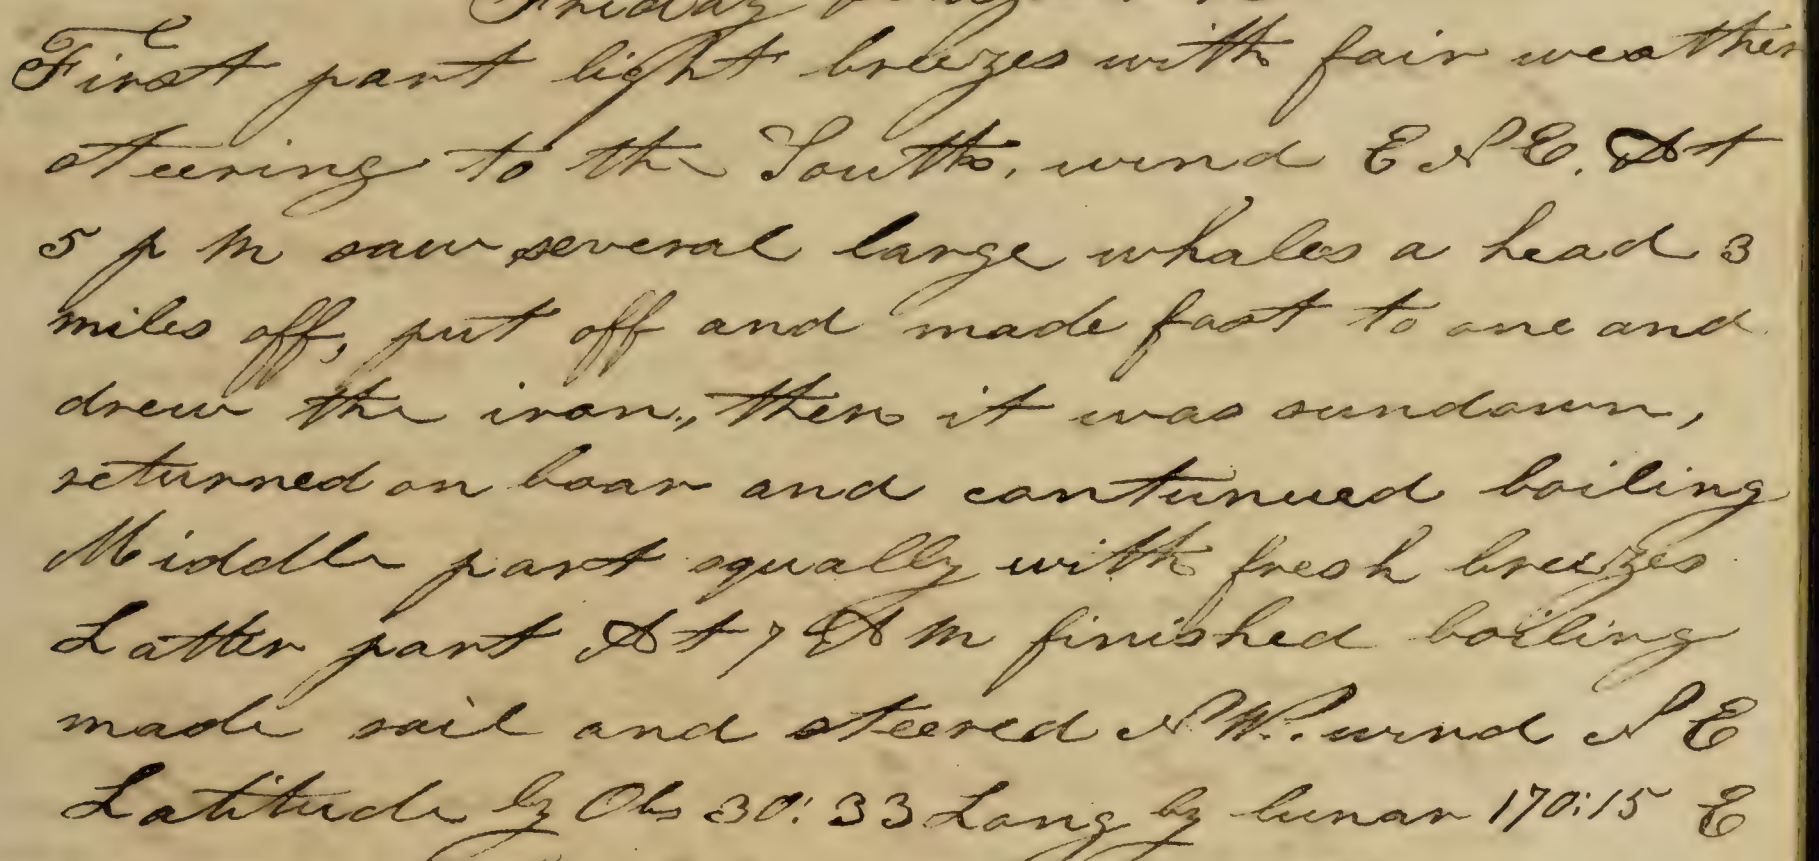 Friday
First part light breezes with fair weather
steering to the South, wind E N E. At
5 p m saw several large whales a head 3
miles off, put off and made fast to one and
drew the iron, then it was sundown,
returned on boar and contunued boiling
Middle part equally with fresh breezes
Latter part At 7 A m finished boiling
made sail and steered N W. wind N E
Latitude by Obs 30:33 Long by lunar 170:15 E